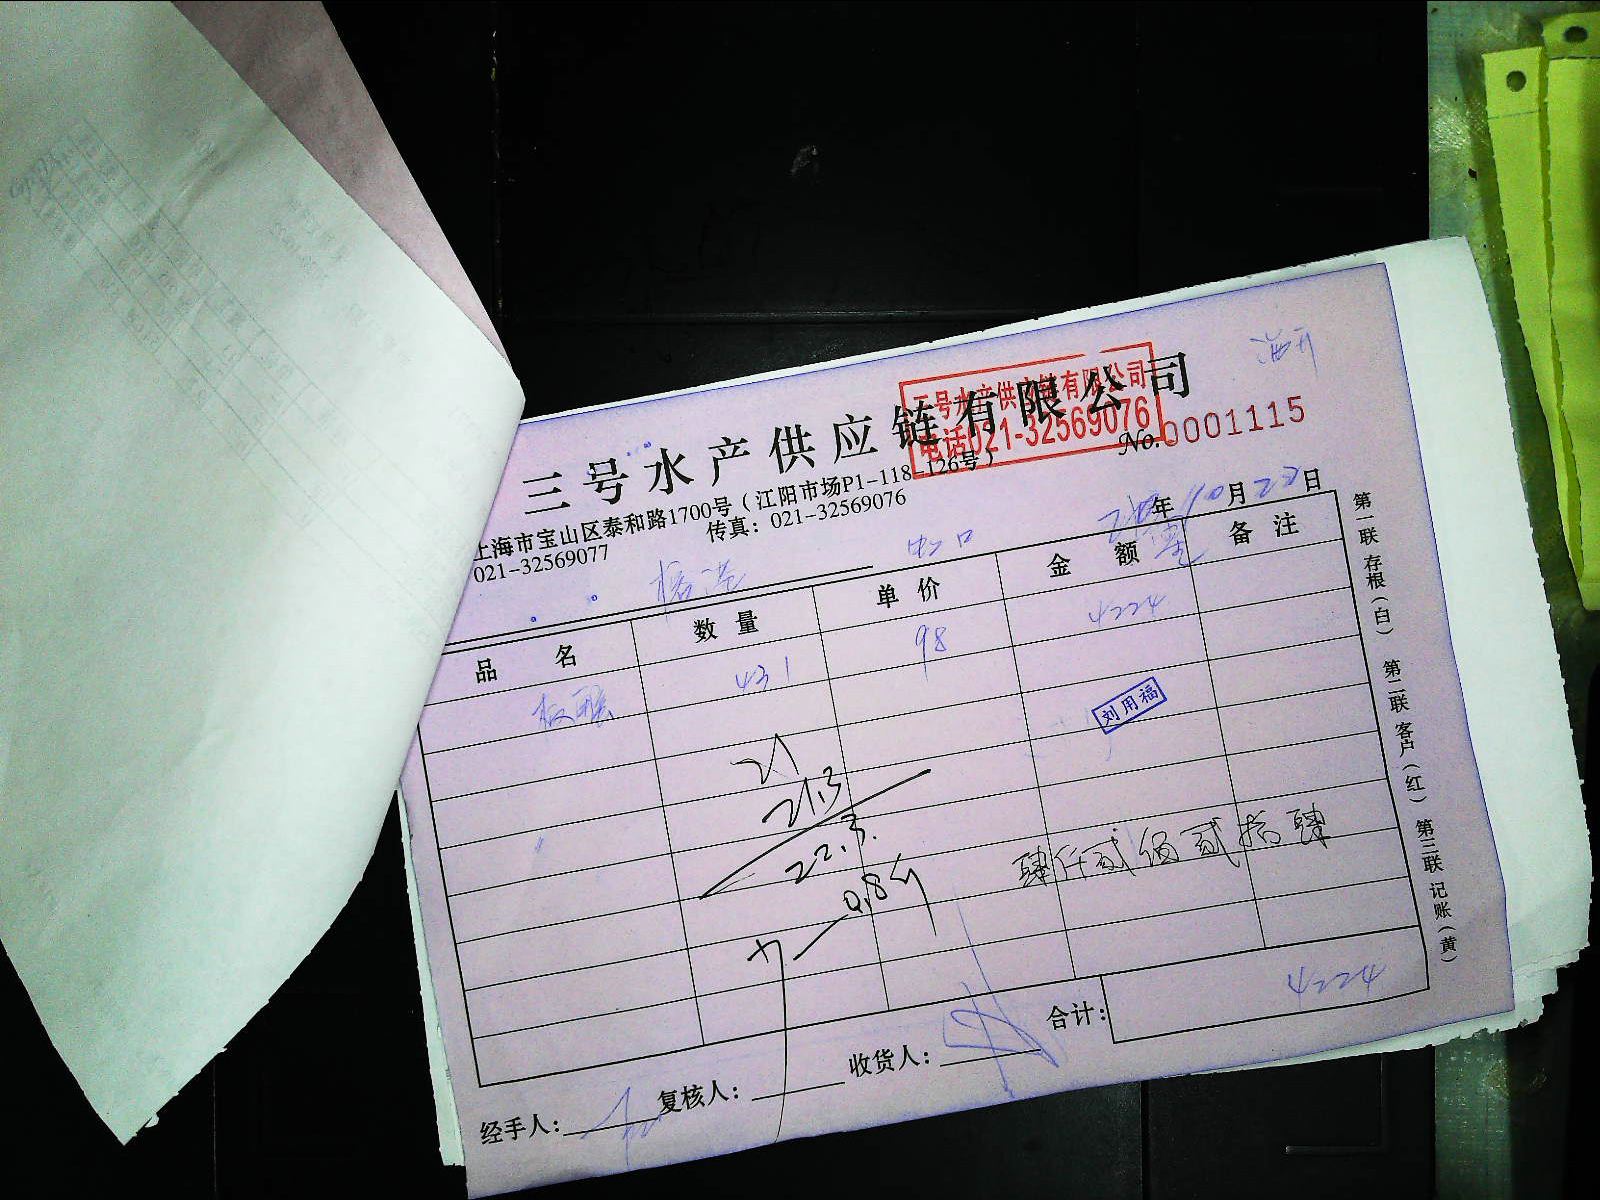 海开
三号水产供应链有限公司
三号水产供应链有限公司
电话021-32569076
No. 0001115
上海市宝山区泰和路1700号（江阳市场P1-118-126号）
021-32569077 传真：021-32569076
年 10 月 22 日
虹口
品名 数量 单价 金额 备注
431 98 4224
刘用福
21
21.3
22.3
0.8斤
肆仟贰佰贰拾肆
合计： 4224
经手人： 复核人： 收货人：
第一联 存根（白） 第二联 客户（红） 第三联 记账（黄）